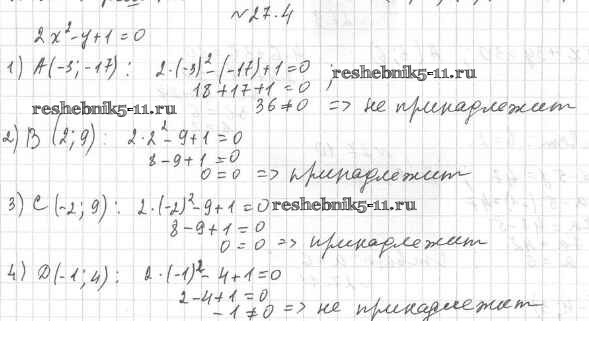 №27.4
2x²-y+1=0
1) A(-3;-17): 2·(-3)²-(-17)+1=0 ; reshebnik5-11.ru
18+17+1=0
reshebnik5-11.ru 36≠0 => не принадлежит
2) B (2;9): 2·2²-9+1=0
8-9+1=0
0=0 => принадлежит
3) C(-2;9): 2·(-2)²-9+1=0 reshebnik5-11.ru
8-9+1=0
0=0 => принадлежит
4) D(-1;4): 2·(-1)²-4+1=0
2-4+1=0
-1≠0 => не принадлежит